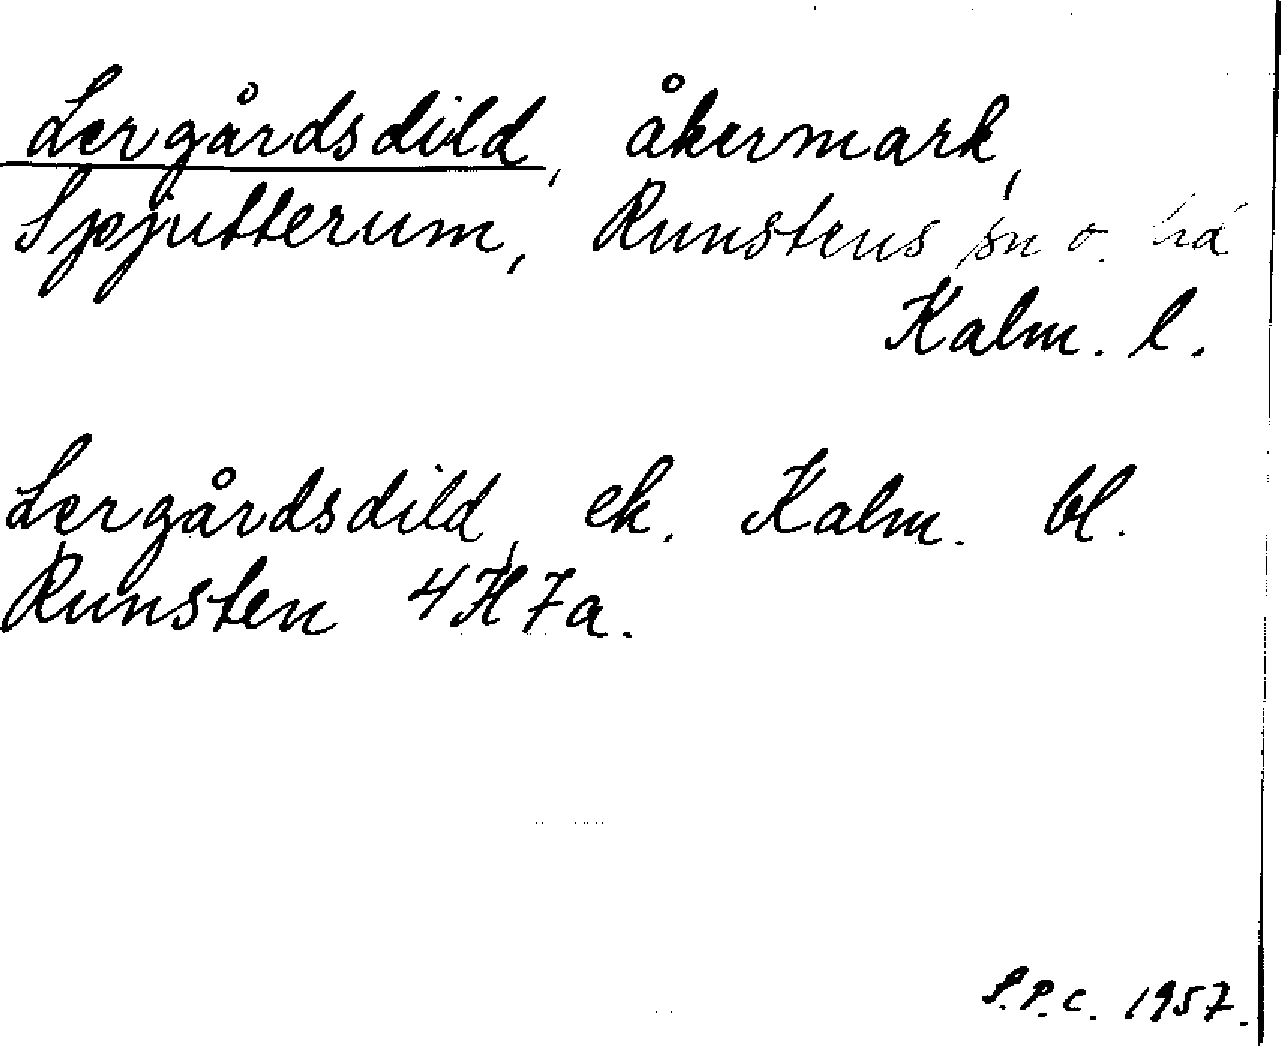 Lergårdsdild, åkermark,
Spjutterum, Runstens sn o. hd
Kalm. l.
Lergårdsdild, ek. Kalm. bl.
Runsten 4H7a.
S.P.C. 1957.